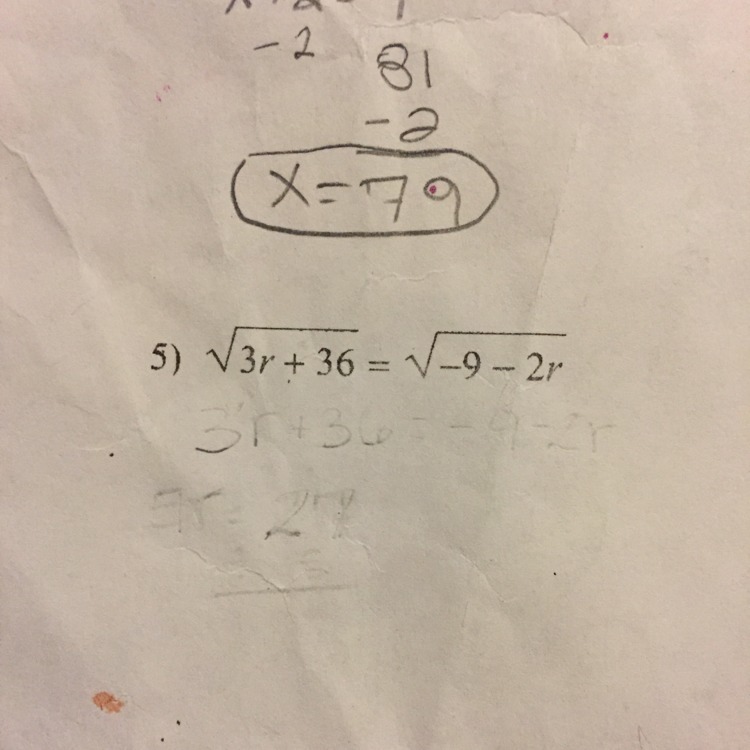 -2 81
-2
x=79
5) √3r + 36 = √-9 - 2r
3r+36=-9-2r
27